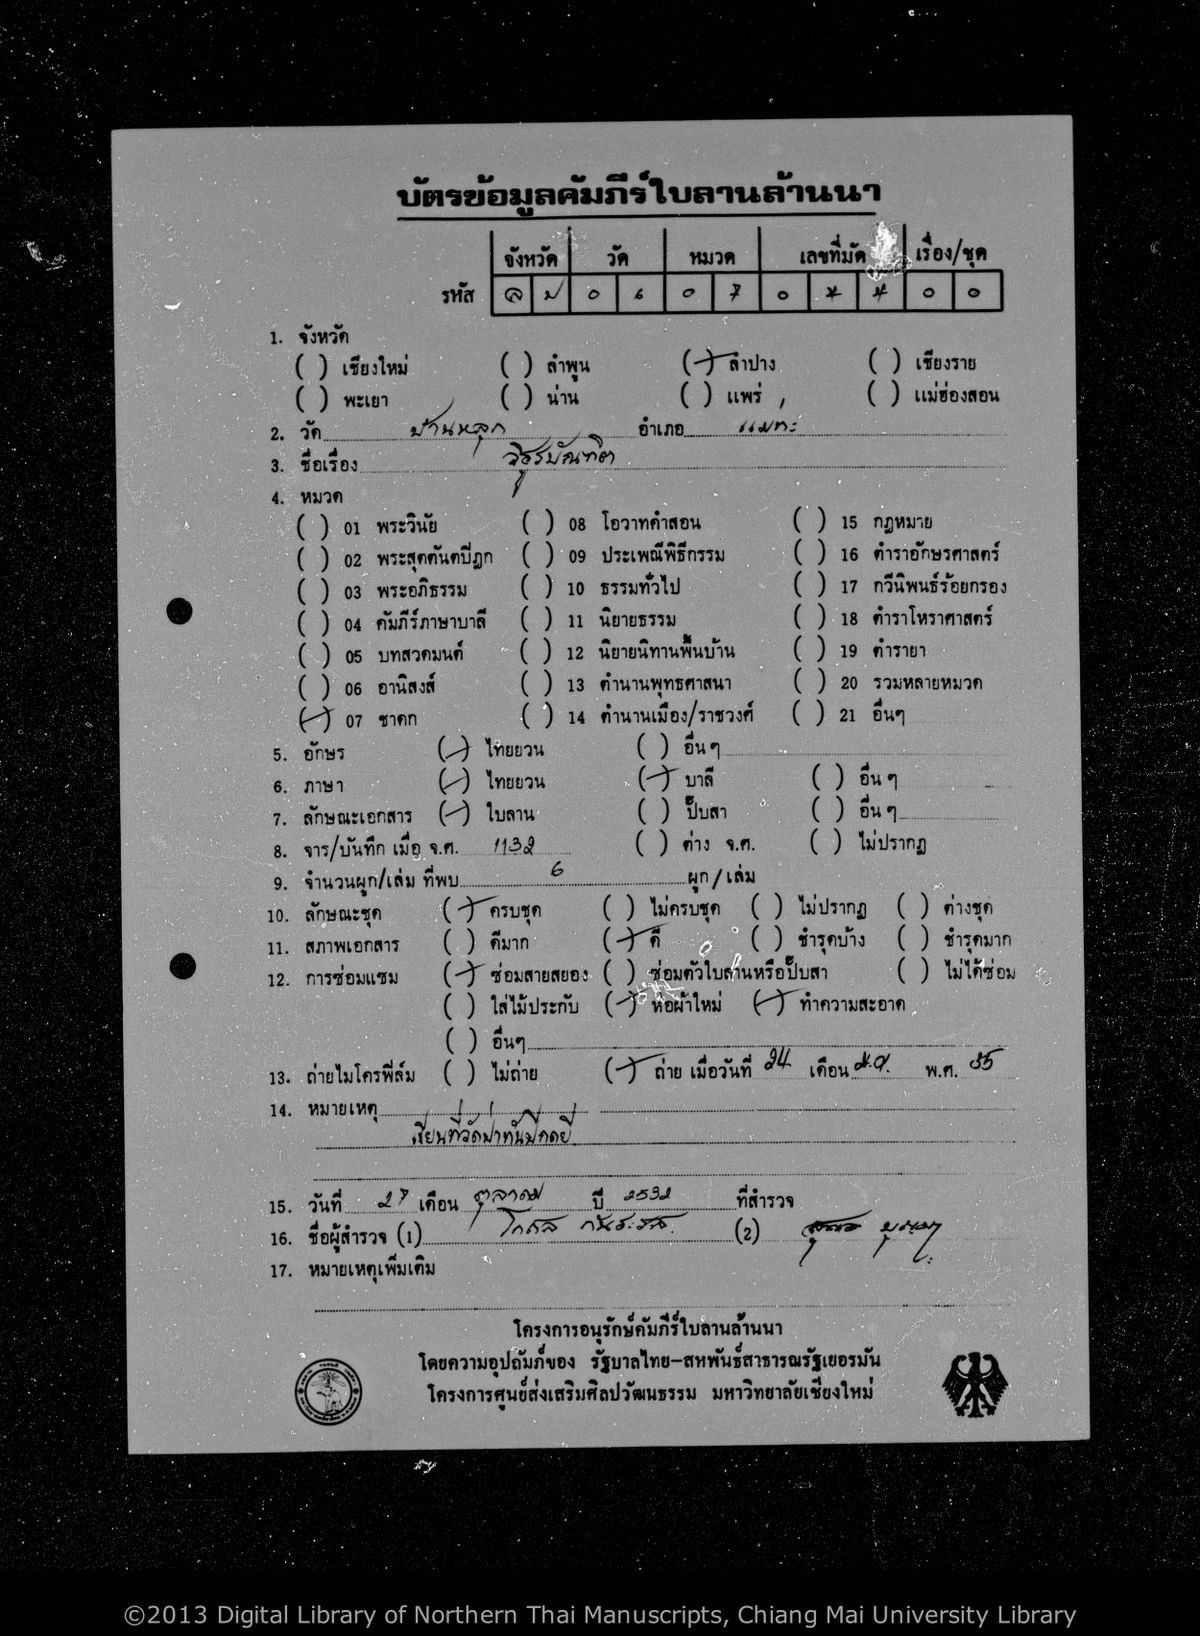 บัตรข้อมูลคัมภีร์ใบลานล้านนา
จังหวัด วัด หมวด เลขที่มัด เรื่อง/ชุด
รหัส ล ป ๐ ๖ ๐ ๗ ๐ ๔ ๔ ๐ ๐
1. จังหวัด
( ) เชียงใหม่ ( ) ลำพูน (/) ลำปาง ( ) เชียงราย
( ) พะเยา ( ) น่าน ( ) แพร่ ( ) แม่ฮ่องสอน
2. วัด บ้านหลุก อำเภอ แม่ทะ
3. ชื่อเรื่อง วิธูรบัณฑิต
4. หมวด
( ) 01 พระวินัย ( ) 08 โอวาทคำสอน ( ) 15 กฎหมาย
( ) 02 พระสุตตันตปิฎก ( ) 09 ประเพณีพิธีกรรม ( ) 16 ตำราอักษรศาสตร์
( ) 03 พระอภิธรรม ( ) 10 ธรรมทั่วไป ( ) 17 กวีนิพนธ์ร้อยกรอง
( ) 04 คัมภีร์ภาษาบาลี ( ) 11 นิยายธรรม ( ) 18 ตำราโหราศาสตร์
( ) 05 บทสวดมนต์ ( ) 12 นิยายนิทานพื้นบ้าน ( ) 19 ตำรายา
( ) 06 อานิสงส์ ( ) 13 ตำนานพุทธศาสนา ( ) 20 รวมหลายหมวด
(/) 07 ชาดก ( ) 14 ตำนานเมือง/ราชวงศ์ ( ) 21 อื่นๆ
5. อักษร (/) ไทยยวน ( ) อื่นๆ
6. ภาษา (/) ไทยยวน (/) บาลี ( ) อื่นๆ
7. ลักษณะเอกสาร (/) ใบลาน ( ) ปั๊บสา ( ) อื่นๆ
8. จาร/บันทึก เมื่อ จ.ศ. 1132 ( ) ต่าง จ.ศ. ( ) ไม่ปรากฏ
9. จำนวนผูก/เล่ม ที่พบ 6 ผูก/เล่ม
10. ลักษณะชุด (/) ครบชุด ( ) ไม่ครบชุด ( ) ไม่ปรากฏ ( ) ต่างชุด
11. สภาพเอกสาร ( ) ดีมาก (/) ดี ( ) ชำรุดบ้าง ( ) ชำรุดมาก
12. การซ่อมแซม (/) ซ่อมสายสยอง ( ) ซ่อมตัวใบลานหรือปั๊บสา ( ) ไม่ได้ซ่อม
( ) ใส่ไม้ประกับ (/) ห่อผ้าใหม่ (/) ทำความสะอาด
( ) อื่นๆ
13. ถ่ายไมโครฟิล์ม ( ) ไม่ถ่าย (/) ถ่าย เมื่อวันที่ 24 เดือน พ.ศ. 35
14. หมายเหตุ
15. วันที่ 27 เดือน ตุลาคม ปี 2532 ที่สำรวจ
16. ชื่อผู้สำรวจ (1) (2)
17. หมายเหตุเพิ่มเติม
โครงการอนุรักษ์คัมภีร์ใบลานล้านนา
โดยความอุปถัมภ์ของ รัฐบาลไทย-สหพันธ์สาธารณรัฐเยอรมัน
โครงการศูนย์ส่งเสริมศิลปวัฒนธรรม มหาวิทยาลัยเชียงใหม่
©2013 Digital Library of Northern Thai Manuscripts, Chiang Mai University Library